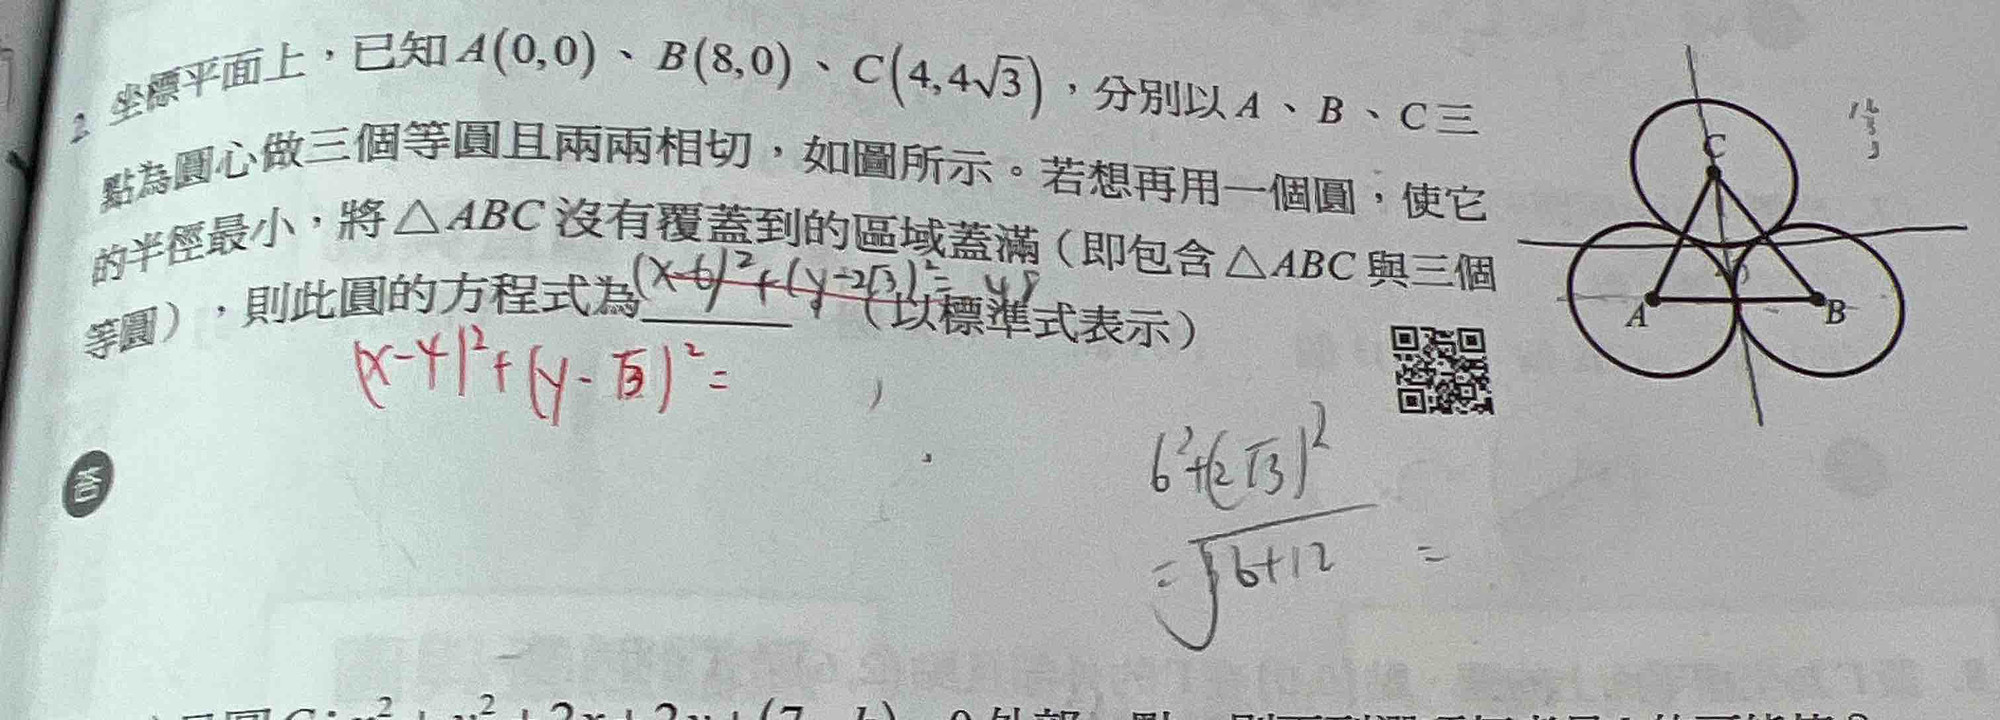 2 坐標平面上，已知A(0,0)、B(8,0)、C(4,4√3)，分別以A、B、C三
點為圓心做三個等圓且兩兩相切，如圖所示。若想再用一個圓，使它
的半徑最小，將△ABC沒有覆蓋到的區域蓋滿（即包含△ABC與三個
(x-6)²+(y-2√3)²=48
等圓），則此圓的方程式為（以標準式表示）
(x-4)²+(y-√3)²=
答
6²+(2√3)²
=√6+12 =
C
A
B